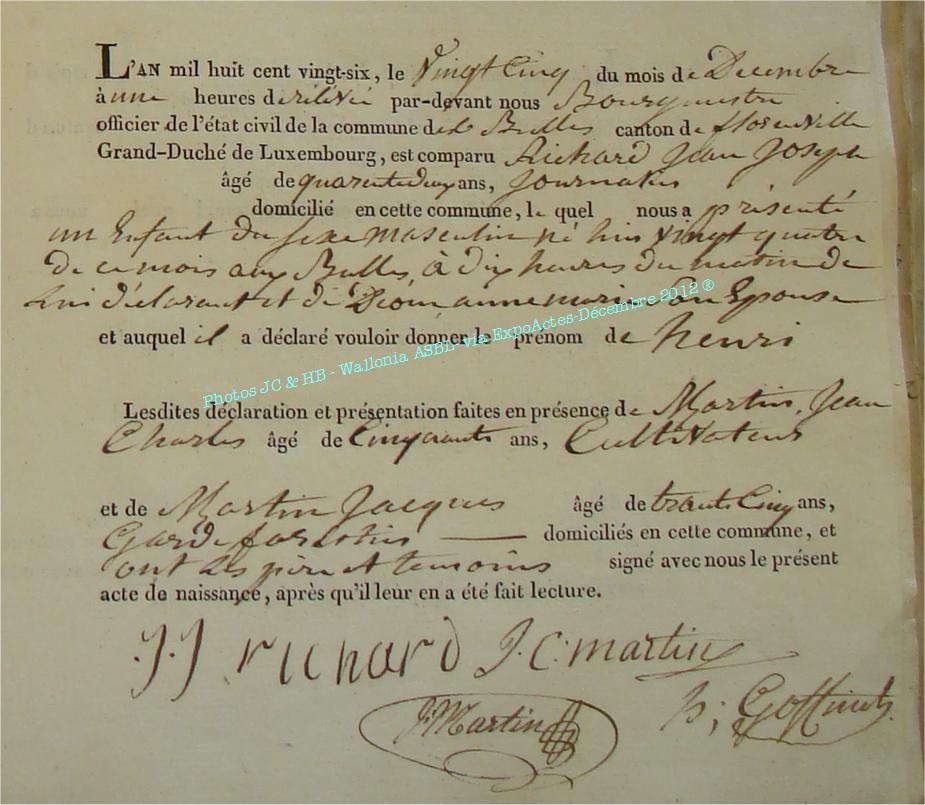 L'AN mil huit cent vingt-six, le Vingt Cinq du mois de Decembre
à une heures de rélévé par-devant nous Bourgmestre
officier de l'état civil de la commune des Bulles canton de florenville
Grand-Duché de Luxembourg, est comparu Richard Jean Joseph
âgé de quarente deux ans, Journalier
domicilié en cette commune, le quel nous a présenté
un Enfant du sexe masculin né hier vingt quatre
de ce mois aux Bulles, à dix heures du matin de
lui déclarant et de anne marie son Epouse
et auquel il a déclaré vouloir donner le prénom de henri
Photos JC & HB - Wallonia ASBL-via ExpoActes-Décembre 2012 ®
Lesdites déclaration et présentation faites en présence de Martin, Jean
Charles âgé de Cinquante ans, Cultivateur
et de Martin Jacques âgé de trente Cinq ans,
Garde forestier — domiciliés en cette commune, et
ont les père et temoins signé avec nous le présent
acte de naissance, après qu'il leur en a été fait lecture.
J.J richard J.C. martin
J. Martin Goffinet